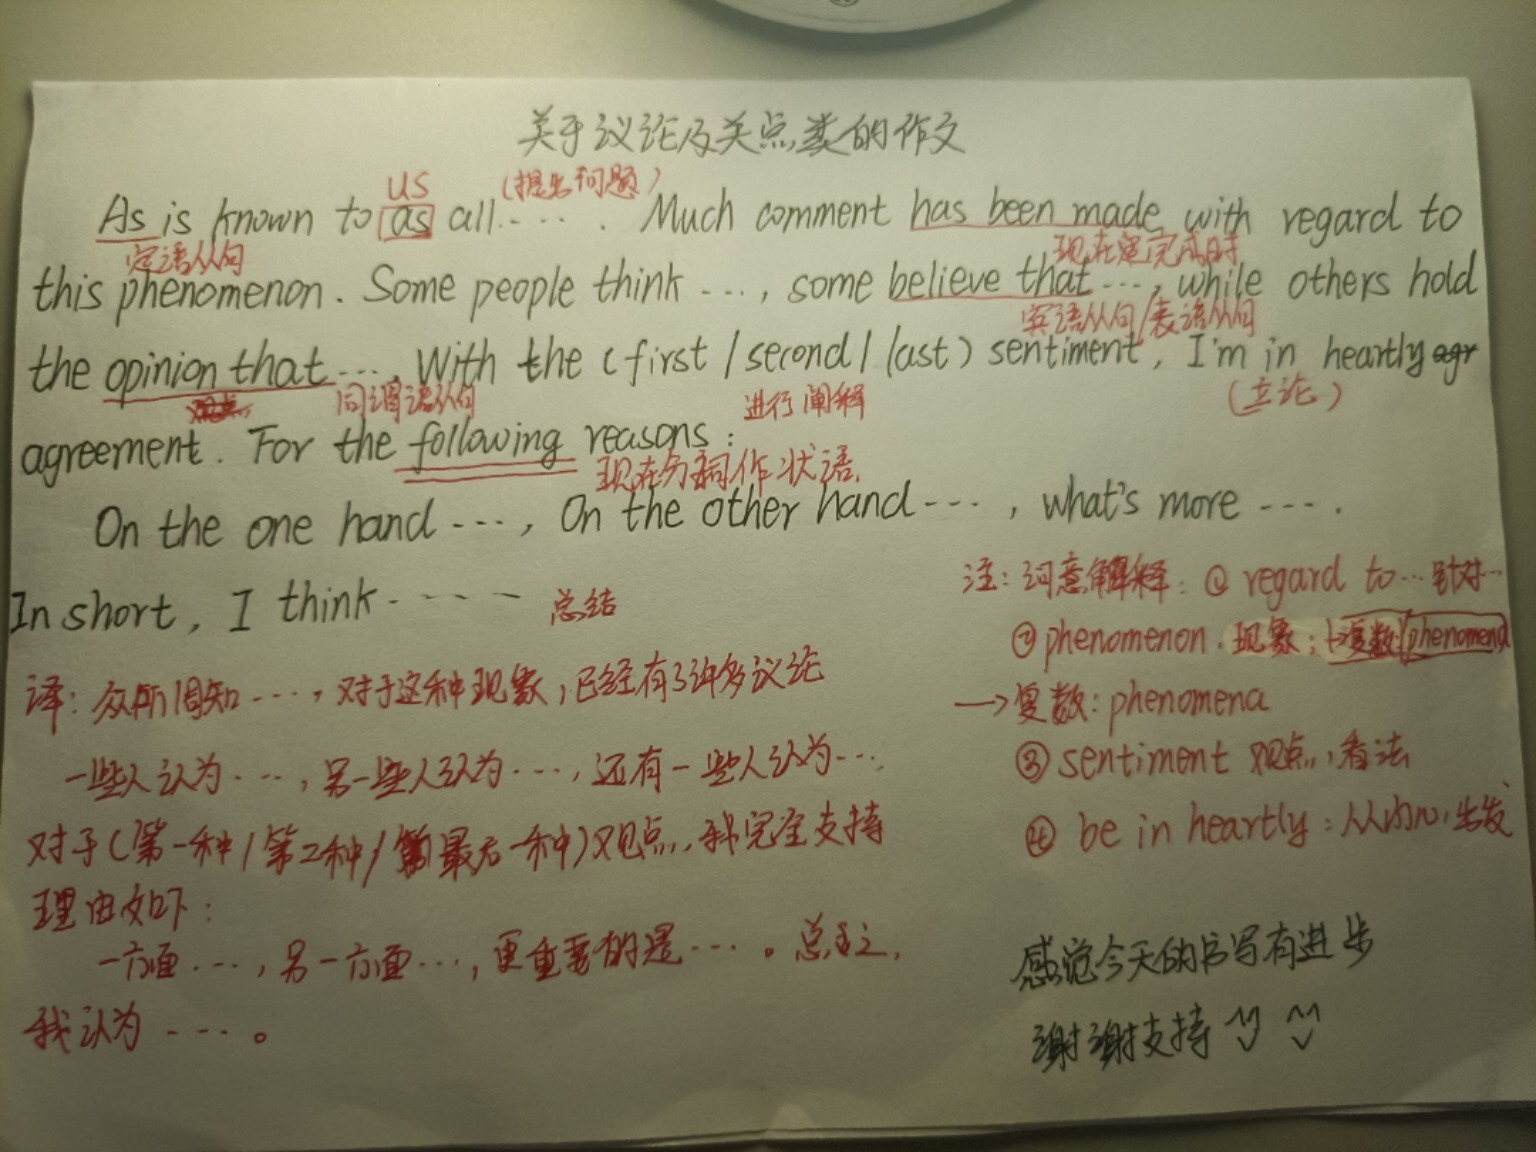 关于议论及关点类的作文
us (提出问题)
As is known to as all..... Much comment has been made with regard to
定语从句 现在完成时
this phenomenon. Some people think ..., some believe that ..., while others hold
宾语从句/表语从句
the opinion that .... With the (first / second / last) sentiment, I'm in heartly
同谓语从句 进行阐释 (立论)
agreement. For the following reasons:
现在分词作状语.
On the one hand ..., On the other hand ..., what's more ....
In short, I think ..... 总结
注: 词意解释: ① regard to... 针对...
② phenomenon. 现象; 复数 phenomena
→ 复数: phenomena
③ sentiment 观点, 看法
④ be in heartly: 从内心出发
译: 众所周知 ..., 对于这种现象, 已经有了许多议论
一些人认为 ..., 另一些人认为 ..., 还有一些人认为 ...,
对于(第一种/第二种/最后一种)观点, 我完全支持
理由如下:
一方面 ..., 另一方面 ..., 更重要的是 ... 。总之,
我认为 ... 。
感觉今天的书写有进步
谢谢支持